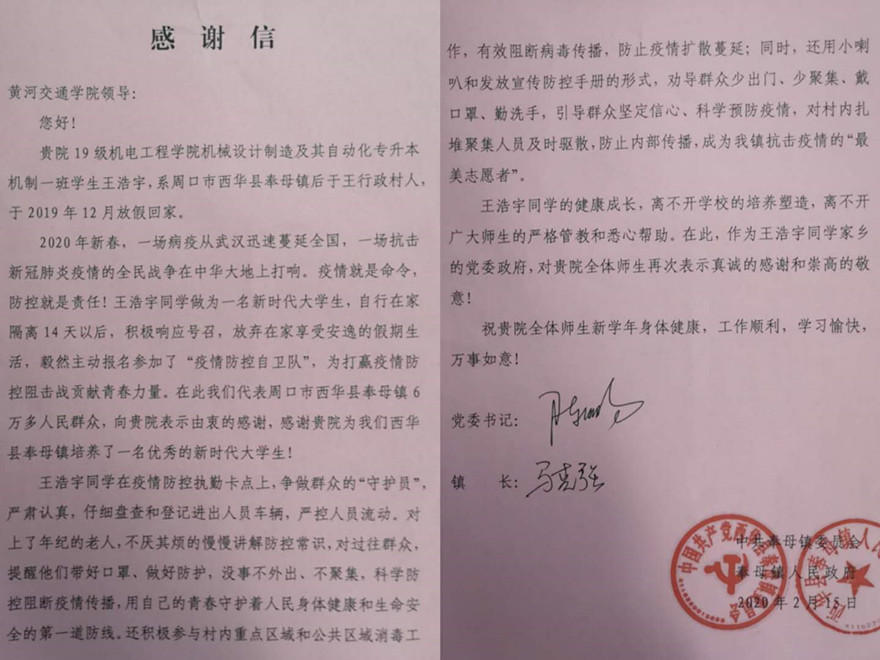 感谢信
黄河交通学院领导：
您好！
贵院19级机电工程学院机械设计制造及其自动化专升本
机制一班学生王浩宇，系周口市西华县奉母镇后于王行政村人，
于2019年12月放假回家。
2020年新春，一场病疫从武汉迅速蔓延全国，一场抗击
新冠肺炎疫情的全民战争在中华大地上打响。疫情就是命令，
防控就是责任！王浩宇同学做为一名新时代大学生，自行在家
隔离14天以后，积极响应号召，放弃在家享受安逸的假期生
活，毅然主动报名参加了“疫情防控自卫队”，为打赢疫情防
控阻击战贡献青春力量。在此我们代表周口市西华县奉母镇6
万多人民群众，向贵院表示由衷的感谢，感谢贵院为我们西华
县奉母镇培养了一名优秀的新时代大学生！
王浩宇同学在疫情防控执勤卡点上，争做群众的“守护员”，
严肃认真，仔细盘查和登记进出人员车辆，严控人员流动。对
上了年纪的老人，不厌其烦的慢慢讲解防控常识，对过往群众，
提醒他们带好口罩、做好防护，没事不外出、不聚集，科学防
控阻断疫情传播，用自己的青春守护着人民身体健康和生命安
全的第一道防线。还积极参与村内重点区域和公共区域消毒工
作，有效阻断病毒传播，防止疫情扩散蔓延；同时，还用小喇
叭和发放宣传防控手册的形式，劝导群众少出门、少聚集、戴
口罩、勤洗手，引导群众坚定信心、科学预防疫情，对村内扎
堆聚集人员及时驱散，防止内部传播，成为我镇抗击疫情的“最
美志愿者”。
王浩宇同学的健康成长，离不开学校的培养塑造，离不开
广大师生的严格管教和悉心帮助。在此，作为王浩宇同学家乡
的党委政府，对贵院全体师生再次表示真诚的感谢和崇高的敬
意！
祝贵院全体师生新学年身体健康，工作顺利，学习愉快，
万事如意！
党委书记：
镇 长：马克强
中共奉母镇委员会
奉母镇人民政府
2020年2月15日